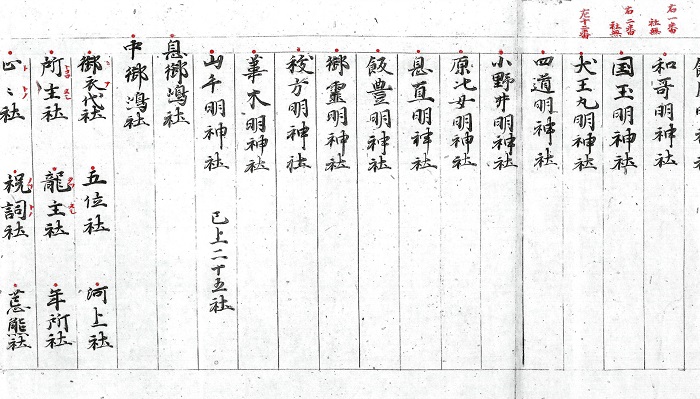 右一番
社無
和哥明神社
右二番
社無
国玉明神社
左十三番
犬王丸明神社
四道明神社
小野井明神社
原七女明神社
息直明神社
飯豊明神社
御霊明神社
明神社
明神社
山千明神社 已上二十五社
息御嶋社
中御嶋社
御衣代社 五位社 河上社
所主社 龍主社 年所社
祝詞社 荒熊社